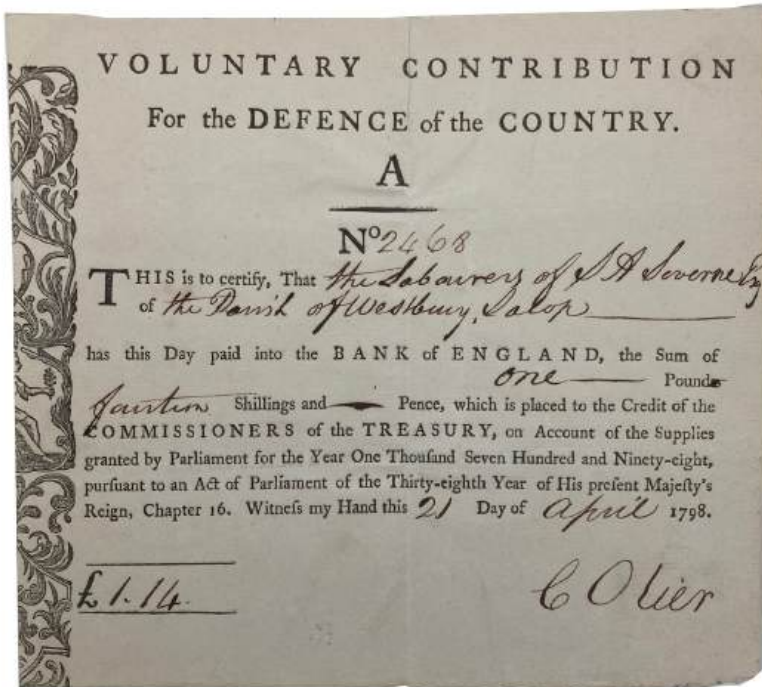 VOLUNTARY CONTRIBUTION
For the DEFENCE of the COUNTRY.
A
No 2468
THIS is to certify, That the Labourers of S A Severne Esq
of the Parish of Westbury, Salop
has this Day paid into the BANK of ENGLAND, the Sum of
one — Pounds
fourteen Shillings and — Pence, which is placed to the Credit of the
COMMISSIONERS of the TREASURY, on Account of the Supplies
granted by Parliament for the Year One Thouſand Seven Hundred and Ninety-eight,
purſuant to an Act of Parliament of the Thirty-eighth Year of His preſent Majeſty's
Reign, Chapter 16. Witneſs my Hand this 21 Day of April 1798.
£ 1. 14.
C Olier